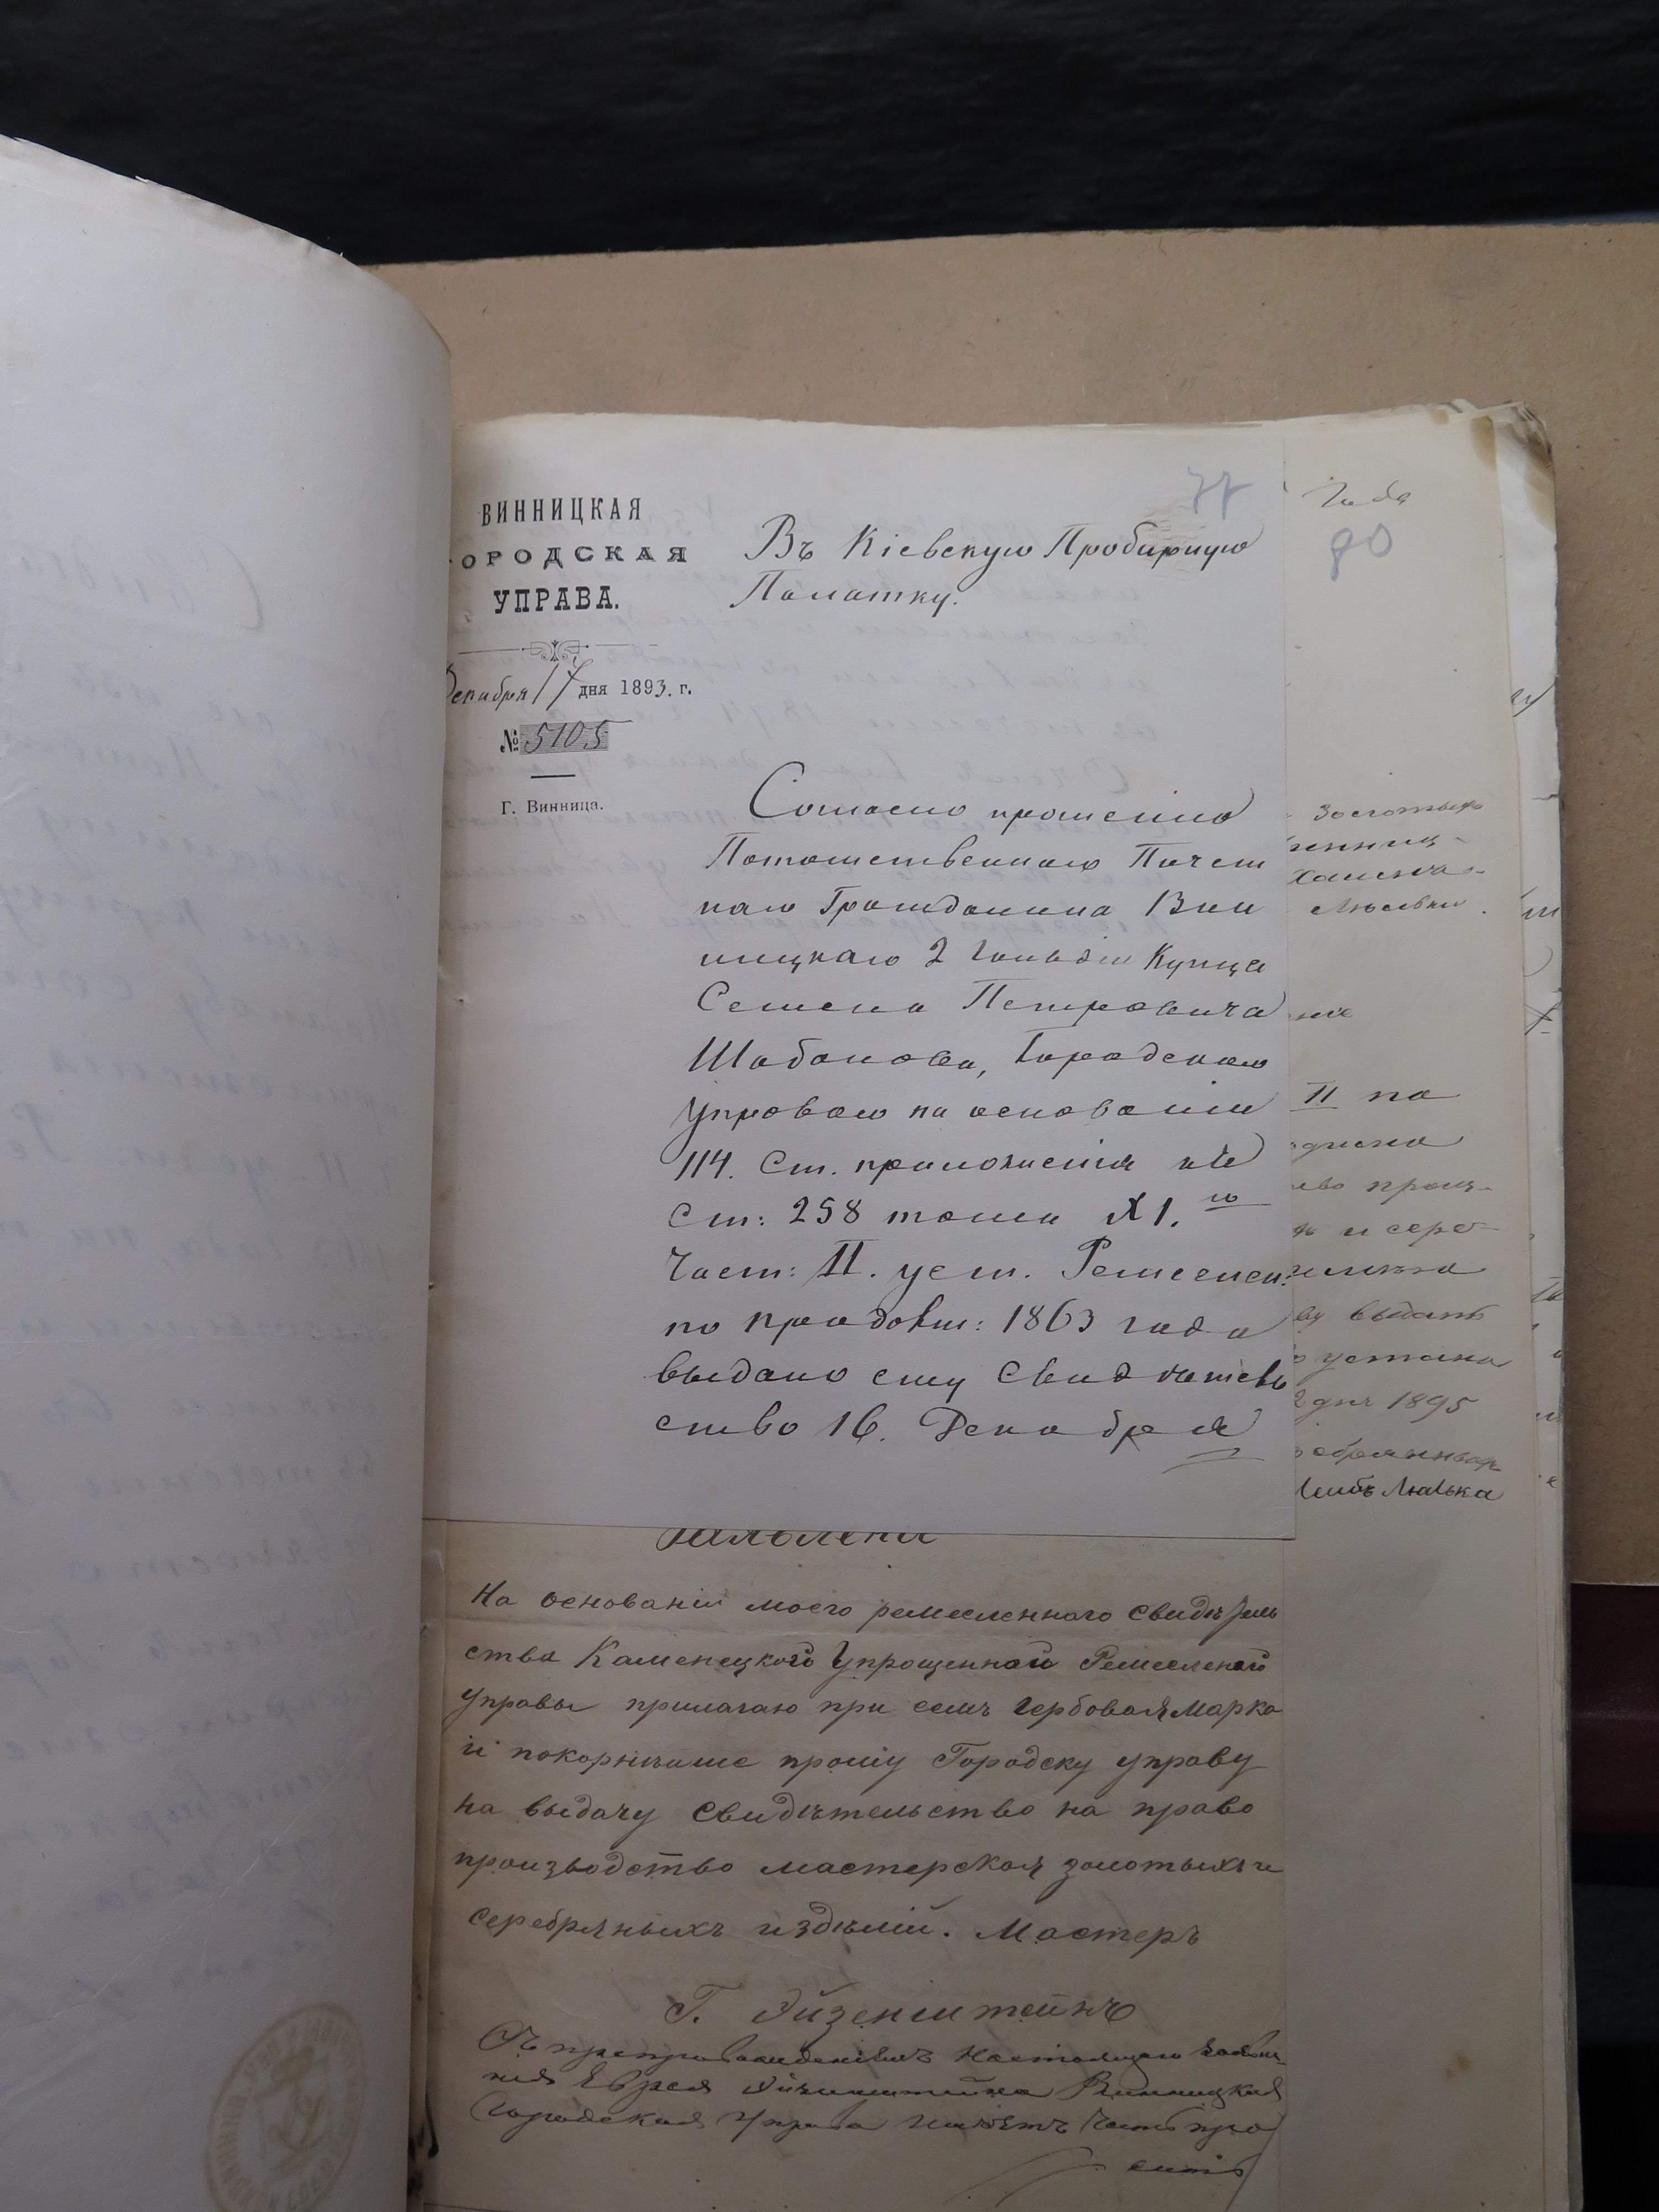 ВИННИЦКАЯ
ОРОДСКАЯ
УПРАВА.
Декабря 17 дня 1893. г.
№ 5105
Г. Винница.
77
Въ Кіевскую Пробирную
Палатку.
Согласно прошенію
Потомственнаго Почет
наго Гражданина Вин
ницкаго 2 Гильдіи Купца
Семена Петровича
Шабанова, Городскою
Управою на основаніи
114. Ст. приложенія къ
Ст: 258 тома XI.го
Част: II. уст. Ремеслен:
по продолж: 1863 года
выдано ему Свидѣтель
ство 16. Декабря
Года
80
Золотыхъ
нихъ
II на
и сере
выдать
1895
Лейбъ Люлька
На основаніи моего ремесленнаго свидѣтель
ства Каменецкого Упрощенной Ремесленой
Управы прилагаю при семъ Гербовая Марка
и покорнѣише прошу Городску управу
на выдачу свидѣтельство на право
производство мастерская золотыхъ и
серебряныхъ издѣлій. Мастеръ
Г. Эйзенштейнъ
Съ препровожденіемъ настоящаго заявле
нія Еврея Айзенштейна Винницкая
Городская Управа имѣетъ честь про
сить